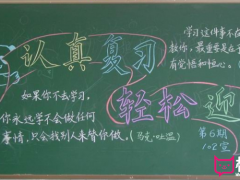 认真复习
学习这件事不在
教你，最重要是在于
有觉悟和恒心。
轻松迎
如果你不去学习，
你永远学不会做任何
事情，只会找别人来替你做。(马克·吐温)
第6期
1=2宣